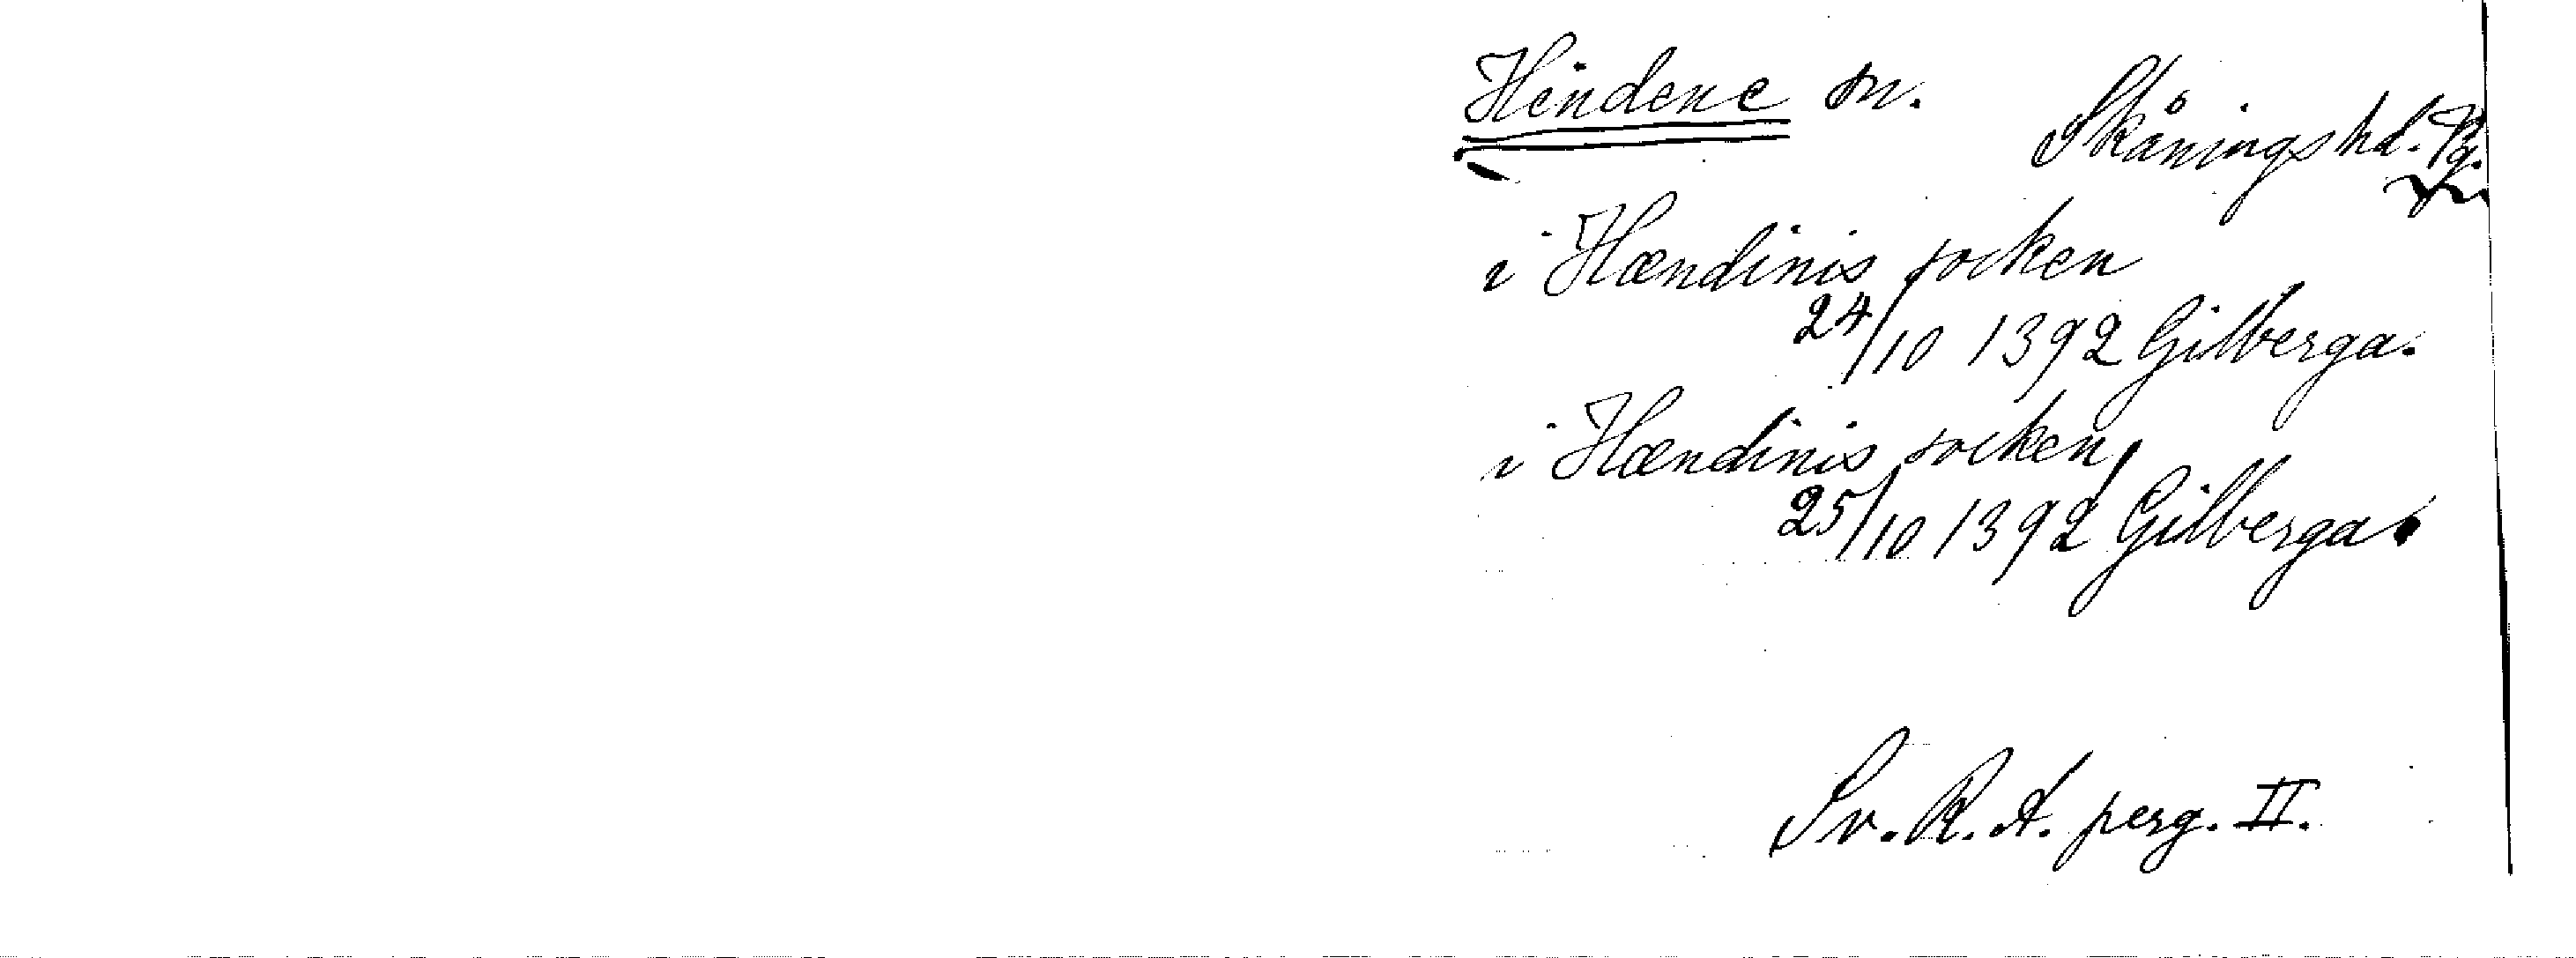 Hindene sn.
Skånings hd.
i Hændinis socken
24/10 1392 Gilberga.
i Hændinis socken
25/10 1392 Gilberga.
Sv. R. A. perg. II.